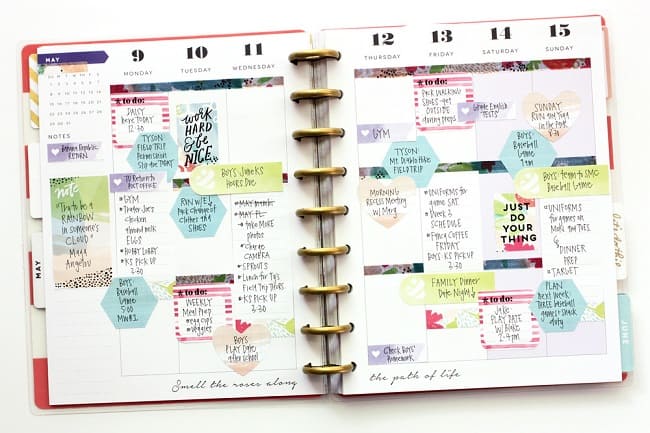 MAY
9
MONDAY
10
TUESDAY
11
WEDNESDAY
NOTES
RETURN
note
Try to be a
RAINBOW
in someone's
CLOUD
Maya
Angelou
to do:
DAISY
here TODAY
12-30
TYSON
FIELD TRIP
Permission
Slip due TODAY
TU Return to
POST OFFICE
*GYM
*Trader Joe's
chicken
almond milk
EGGS
*HOBBY LOBBY
*KS PICK UP
3-30
Boys
Baseball
Game
5:00
work
HARD
& be
NICE.
Boys June KS
Hours Due
RUN w/
pick change of
clothes the
SHOES
to do:
WEEKLY
Meal Prep
*egg cups
*veggies
*take MORE
PHOTOS
CAMERA
*SPROUTS
*Lunch for Ty's
Field Trip
*KS PICK UP
3-30
Boys
PLAY DATE
after school
Smell the roses along
12
THURSDAY
13
FRIDAY
14
SATURDAY
15
SUNDAY
GYM
TYSON
Mt. Diablo Hike
FIELD TRIP
MORNING
RECESS Meeting
w/ Mary
Check Boys'
Homework
to do:
Pick WALKING
SHOES - get
OUTSIDE
during preps
*UNIFORMS for
game SAT.
*Week 3
SCHEDULE
*Fancy COFFEE
FRIDAY
BOYS-KS PICKUP
3-30
FAMILY Dinner
Date Night
Grade English
TESTS
Boys
Baseball
Game
9am
Boys Team to SMC
Baseball Game
JUST
DO YOUR
THING
to do:
Jake
PLAY DATE
w/ Blake
2-4pm
SUNDAY
RUN and YOGA
in the PARK
*UNIFORMS
for games
on Mon Tues
*DINNER
PREP
*TARGET
PLAN
next week
THREE baseball
games + Snack
duty
the path of life
MAY
JUNE